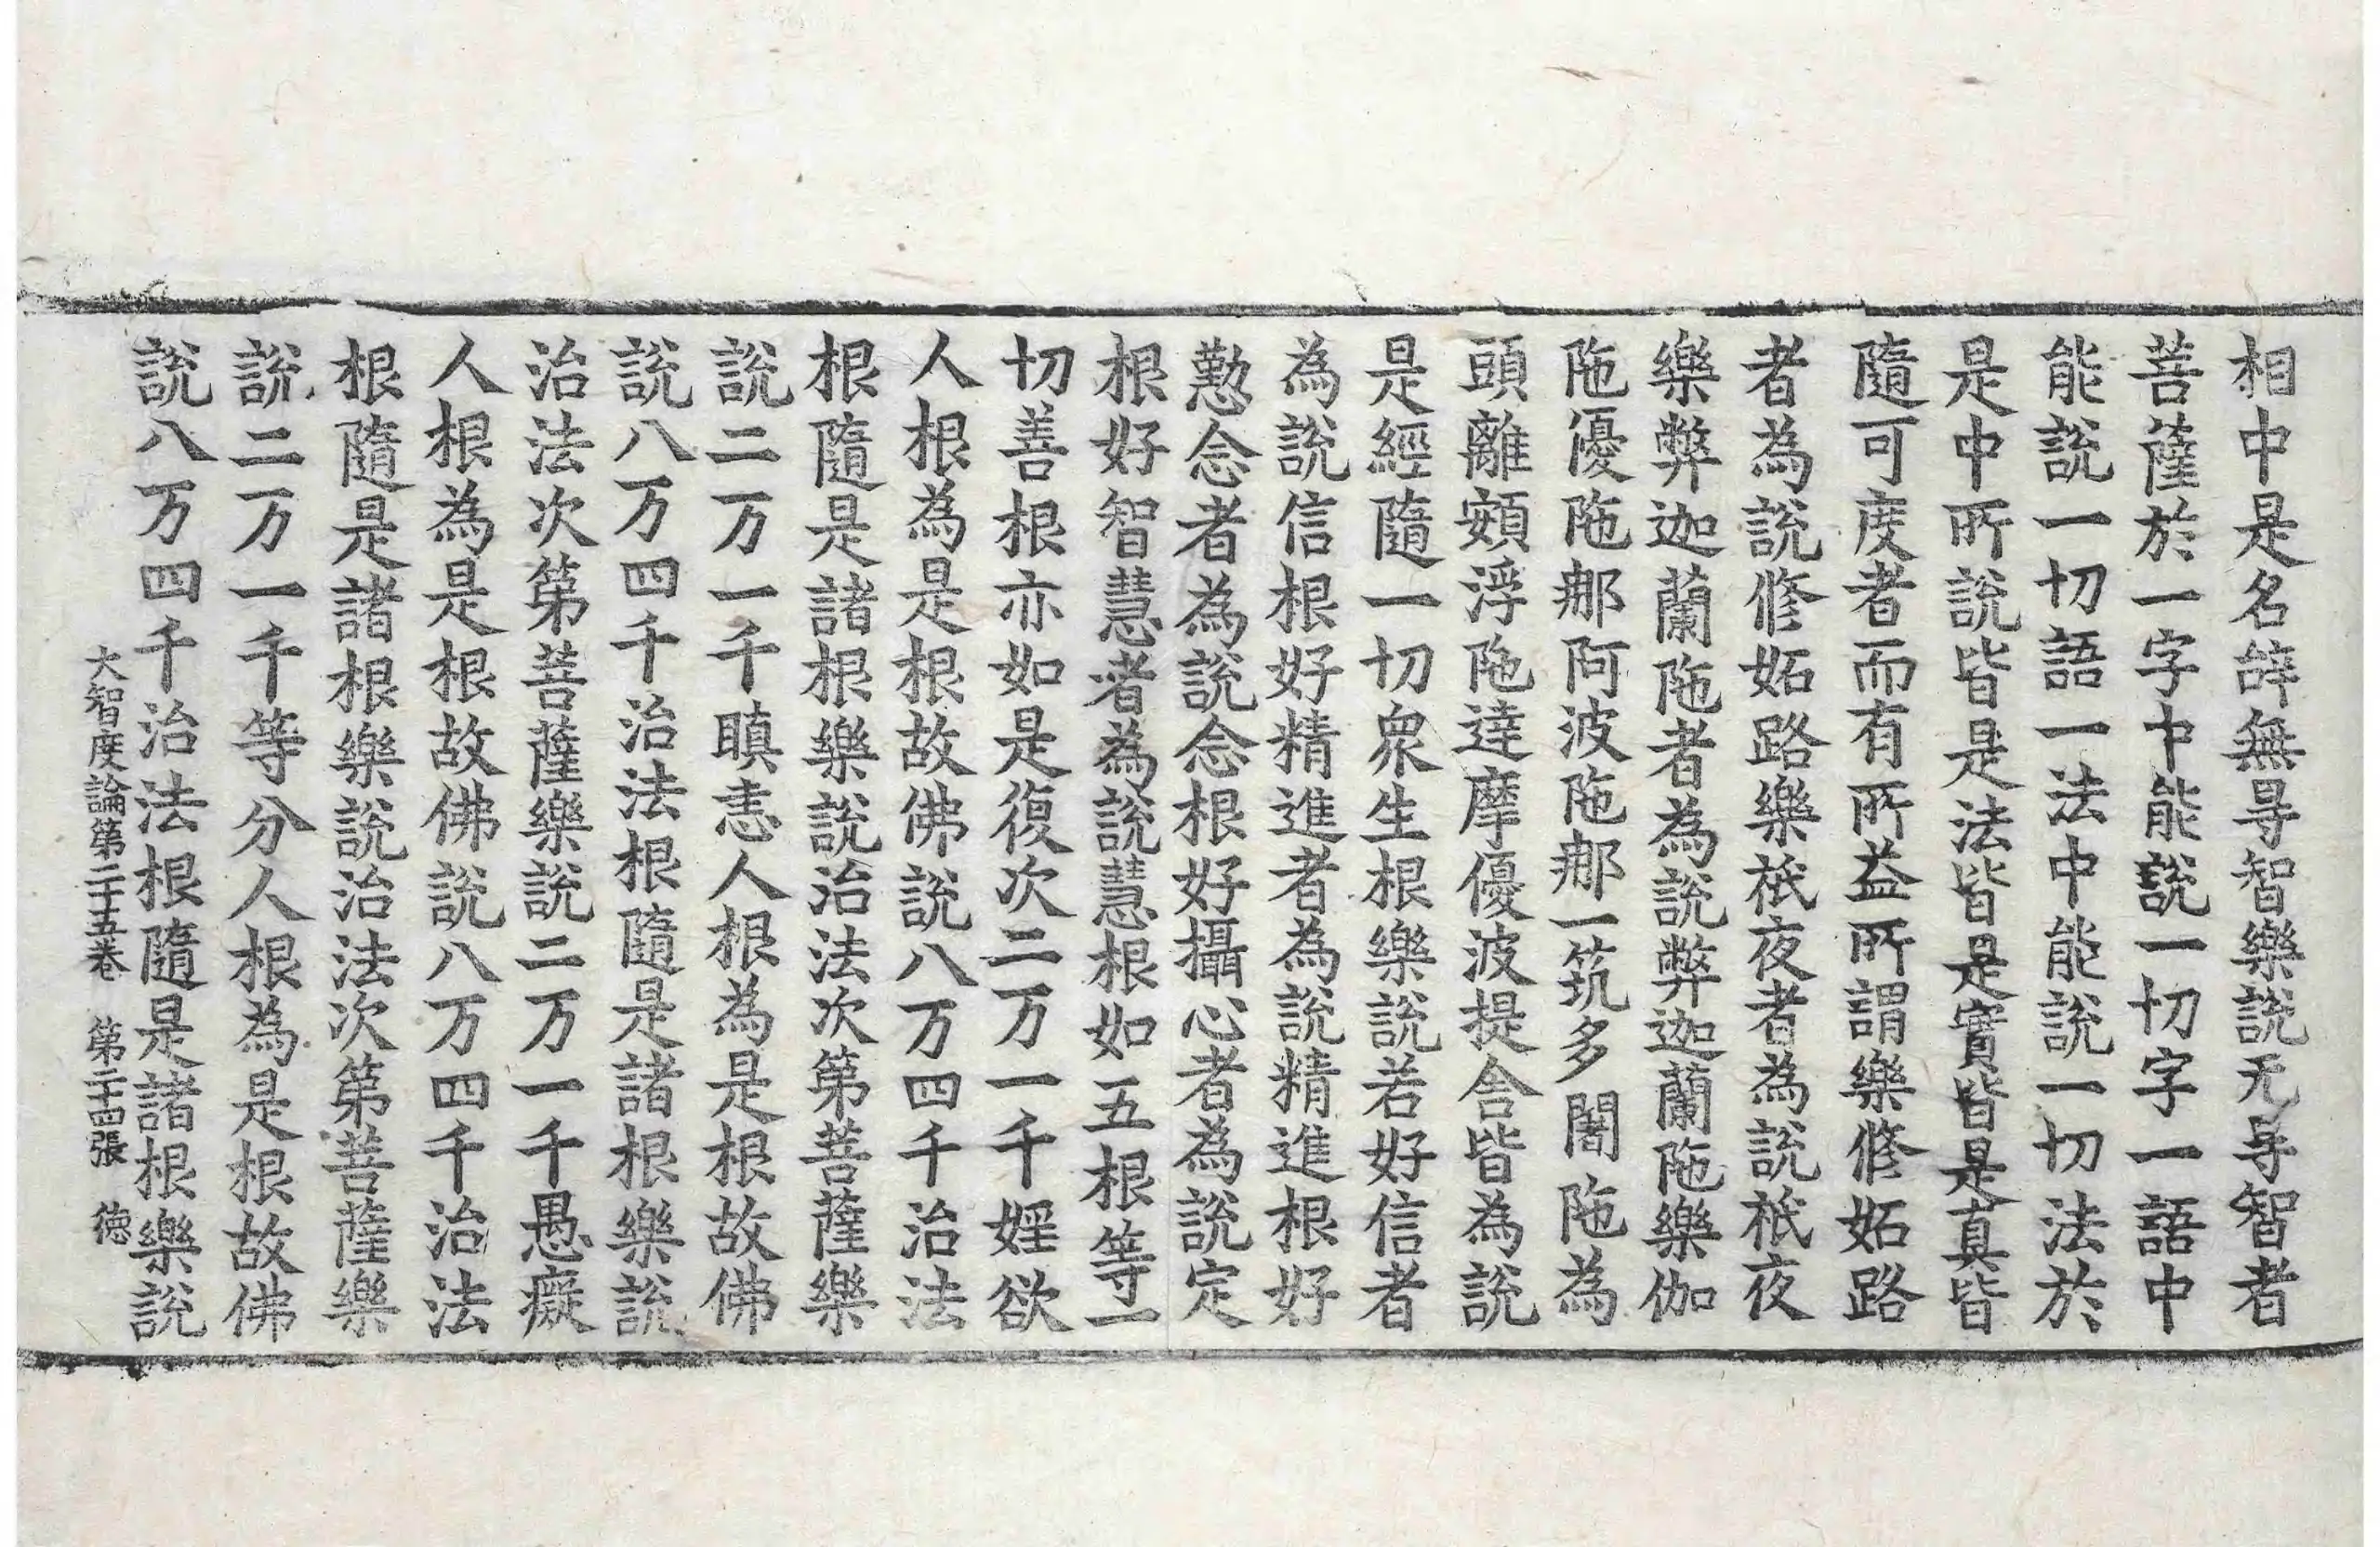 相中是名辞無㝵智樂說无㝵智者
菩薩於一字中能說一切字一語中
能說一切語一法中能說一切法於
是中所說皆是法皆是實皆是真皆
隨可度者而有所益所謂樂修妬路
者為說修妬路樂祇夜者為說祇夜
樂弊迦蘭陁者為說弊迦蘭陁樂伽
陁優陁那阿波陁那一筑多闍陁為
頭離頞浮陁達摩優波提舍皆為說
是經隨一切衆生根樂說若好信者
為說信根好精進者為說精進根好
懃念者為說念根好攝心者為說定
根好智慧者為說慧根如五根等一
切善根亦如是復次二万一千婬欲
人根為是根故佛說八万四千治法
根隨是諸根樂說治法次第菩薩樂
說二万一千瞋恚人根為是根故佛
說八万四千治法根隨是諸根樂說
治法次第菩薩樂說二万一千愚癡
人根為是根故佛說八万四千治法
根隨是諸根樂說治法次第菩薩樂
說二万一千等分人根為是根故佛
說八万四千治法根隨是諸根樂說
大智度論第二十五卷 第二十四張 徳